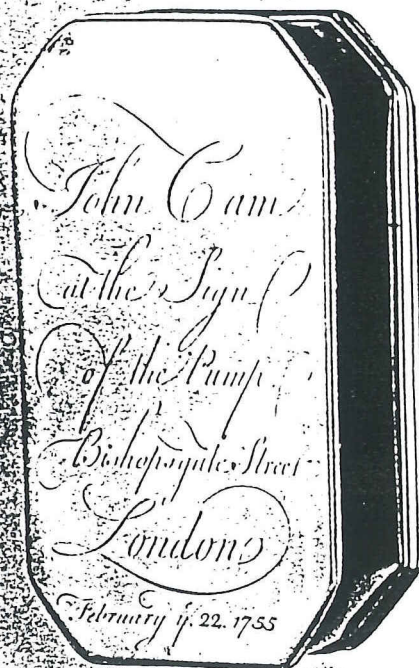 John Cam
at the Sign
of the Pump
Bishopsgate Street
London
February y. 22. 1755